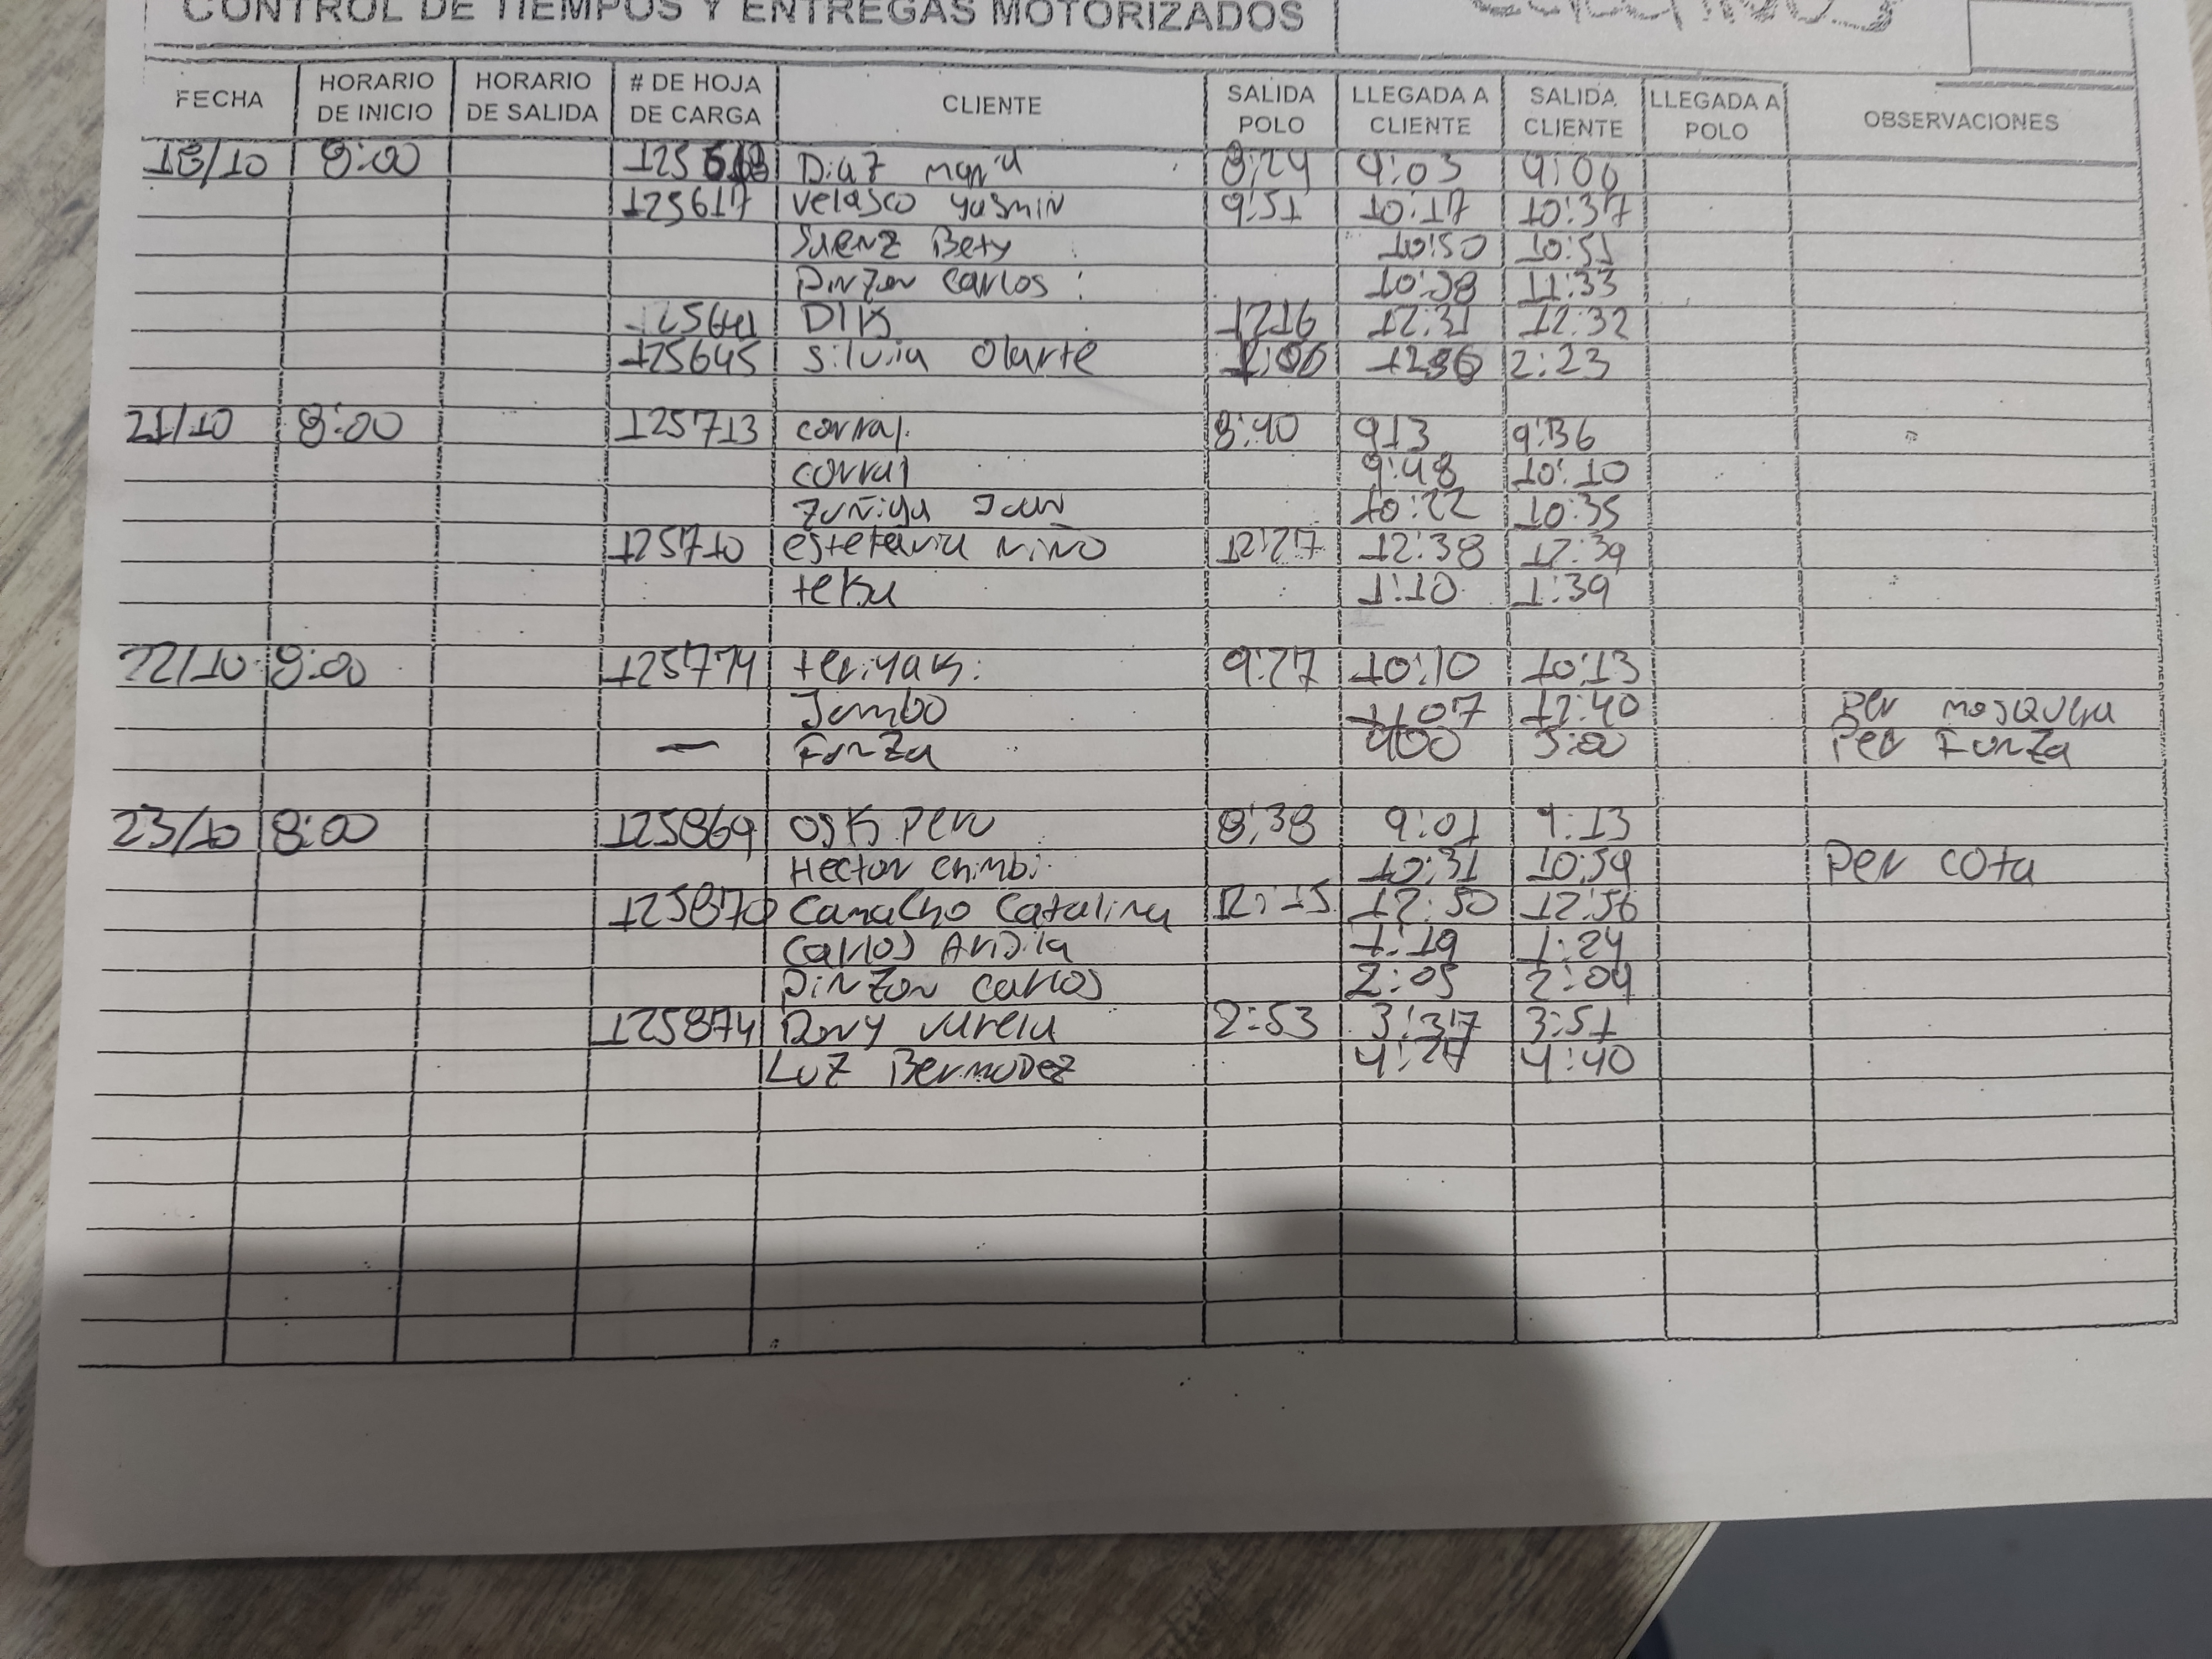 CONTROL DE TIEMPOS Y ENTREGAS MOTORIZADOS
FECHA HORARIO DE INICIO HORARIO DE SALIDA # DE HOJA DE CARGA CLIENTE SALIDA POLO LLEGADA A CLIENTE SALIDA CLIENTE LLEGADA A POLO OBSERVACIONES
18/10 8:00 Diaz maria 8:24 9:03
125617 velasco yasmin 9:51 10:17 10:37
Saenz Bety 10:50 10:51
Pinzon Carlos 10:58 11:33
DIK 1216 12:31 12:32
125645 Silvia Olarte 2:23
21/10 8:00 125713 corral 8:40 913 9:36
corral 9:48 10:10
Zuñiga Juan 10:22 10:35
125710 estefania niño 12:27 12:38 12:39
teka 1:10 1:39
22/10 8:00 125774 teriyaki 9:27 10:10 10:13
Jumbo 1107 12:40 Per mosquera
— Funza 400 5:00 Per Funza
23/10 8:00 125869 OSK Peru 8:38 9:01 9:13
Hector chimbi 10:31 10:59 Per cota
125870 Camacho Catalina 12:15 12:50 12:56
Carlos Ardila 1:19 1:24
Pinzon carlos 2:05 2:09
125874 Dory Varela 2:53 3:37 3:51
Luz Bermudez 4:27 4:40